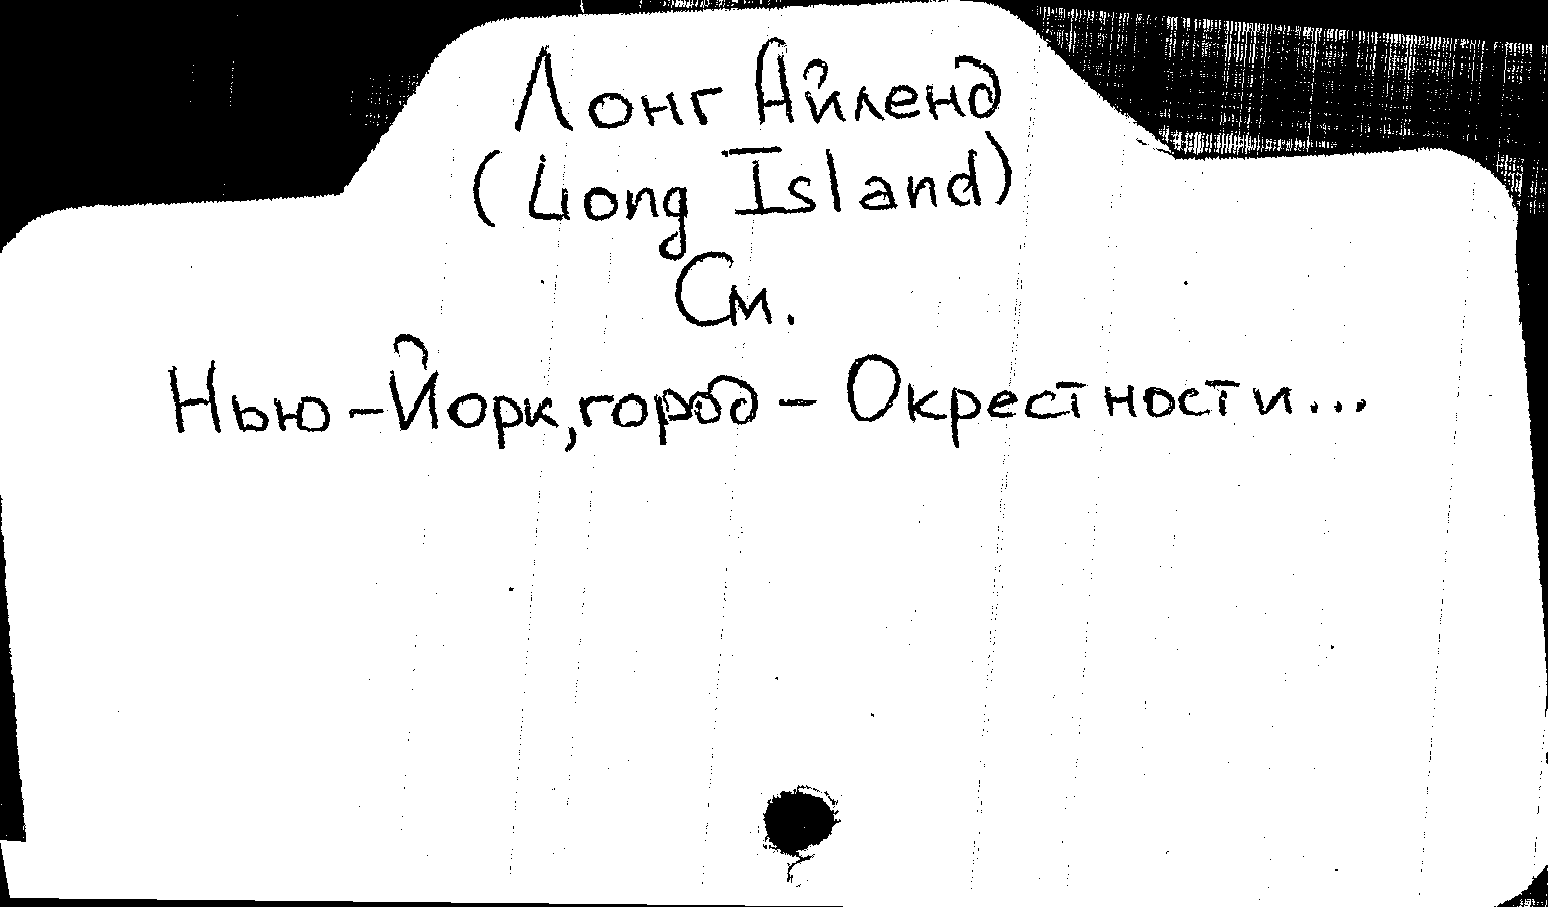 Лонг Айленд
(Long Island)
См.
Нью-Йорк, город - Окрестности...